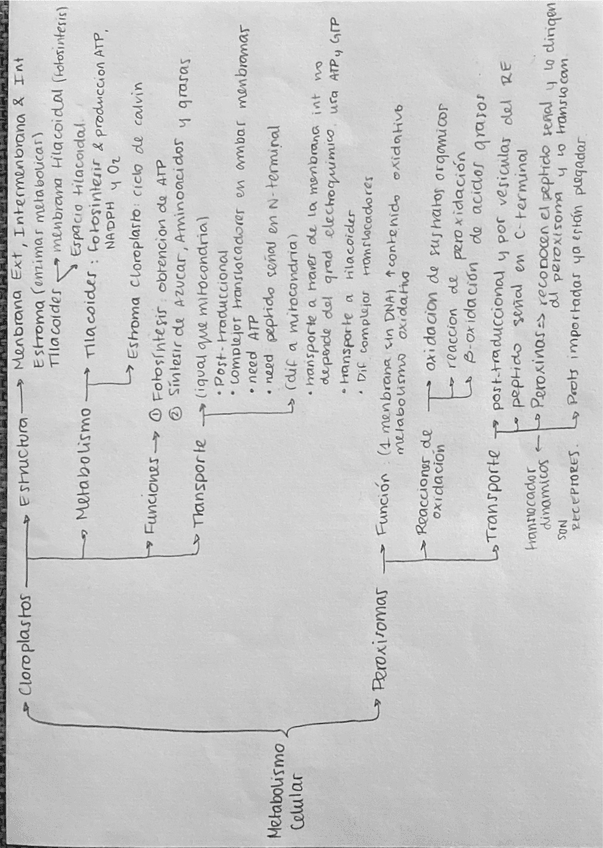 Metabolismo
Celular
Cloroplastos
Estructura → Menbrana Ext, Intermenbrana & Int
Estroma (enzimas metabolicas)
Tilacoides → menbrana tilacoidal (fotosintesis)
Espacio tilacoidal.
Metabolismo → Tilacoides: Fotosíntesis & produccion ATP,
NADPH y O2
Estroma Cloroplasto: ciclo de calvin
Funciones → ① Fotosíntesis: obtencion de ATP
② Síntesis de Azucar, Aminoacidos y grasas
Transporte (igual que mitocondria)
• Post-traduccional
• complejos translocadores en ambas menbranas
• need ATP
• need peptido señal en N-terminal
(dif a mitocondria)
• transporte a traves de la menbrana int no
depende del grad electroquimico, usa ATP y GTP
• transporte a tilacoides
• Dif complejos translocadores
Peroxisomas
Función: (1 menbrana sin DNA) ↑contenido oxidativo
metabolismo oxidativo
Reacciones de
oxidación
oxidación de sustratos organicos
reaccion de peroxidación
β-oxidación de acidos grasos
Transporte → post-traduccional y por vesiculas del RE
peptido señal en C-terminal
Peroxinas => reconocen el peptido señal y lo dirigen
al peroxisoma y lo translocan
translocador
dinamicos ←
SON
RECEPTORES.
Prots importadas ya están plegadas.